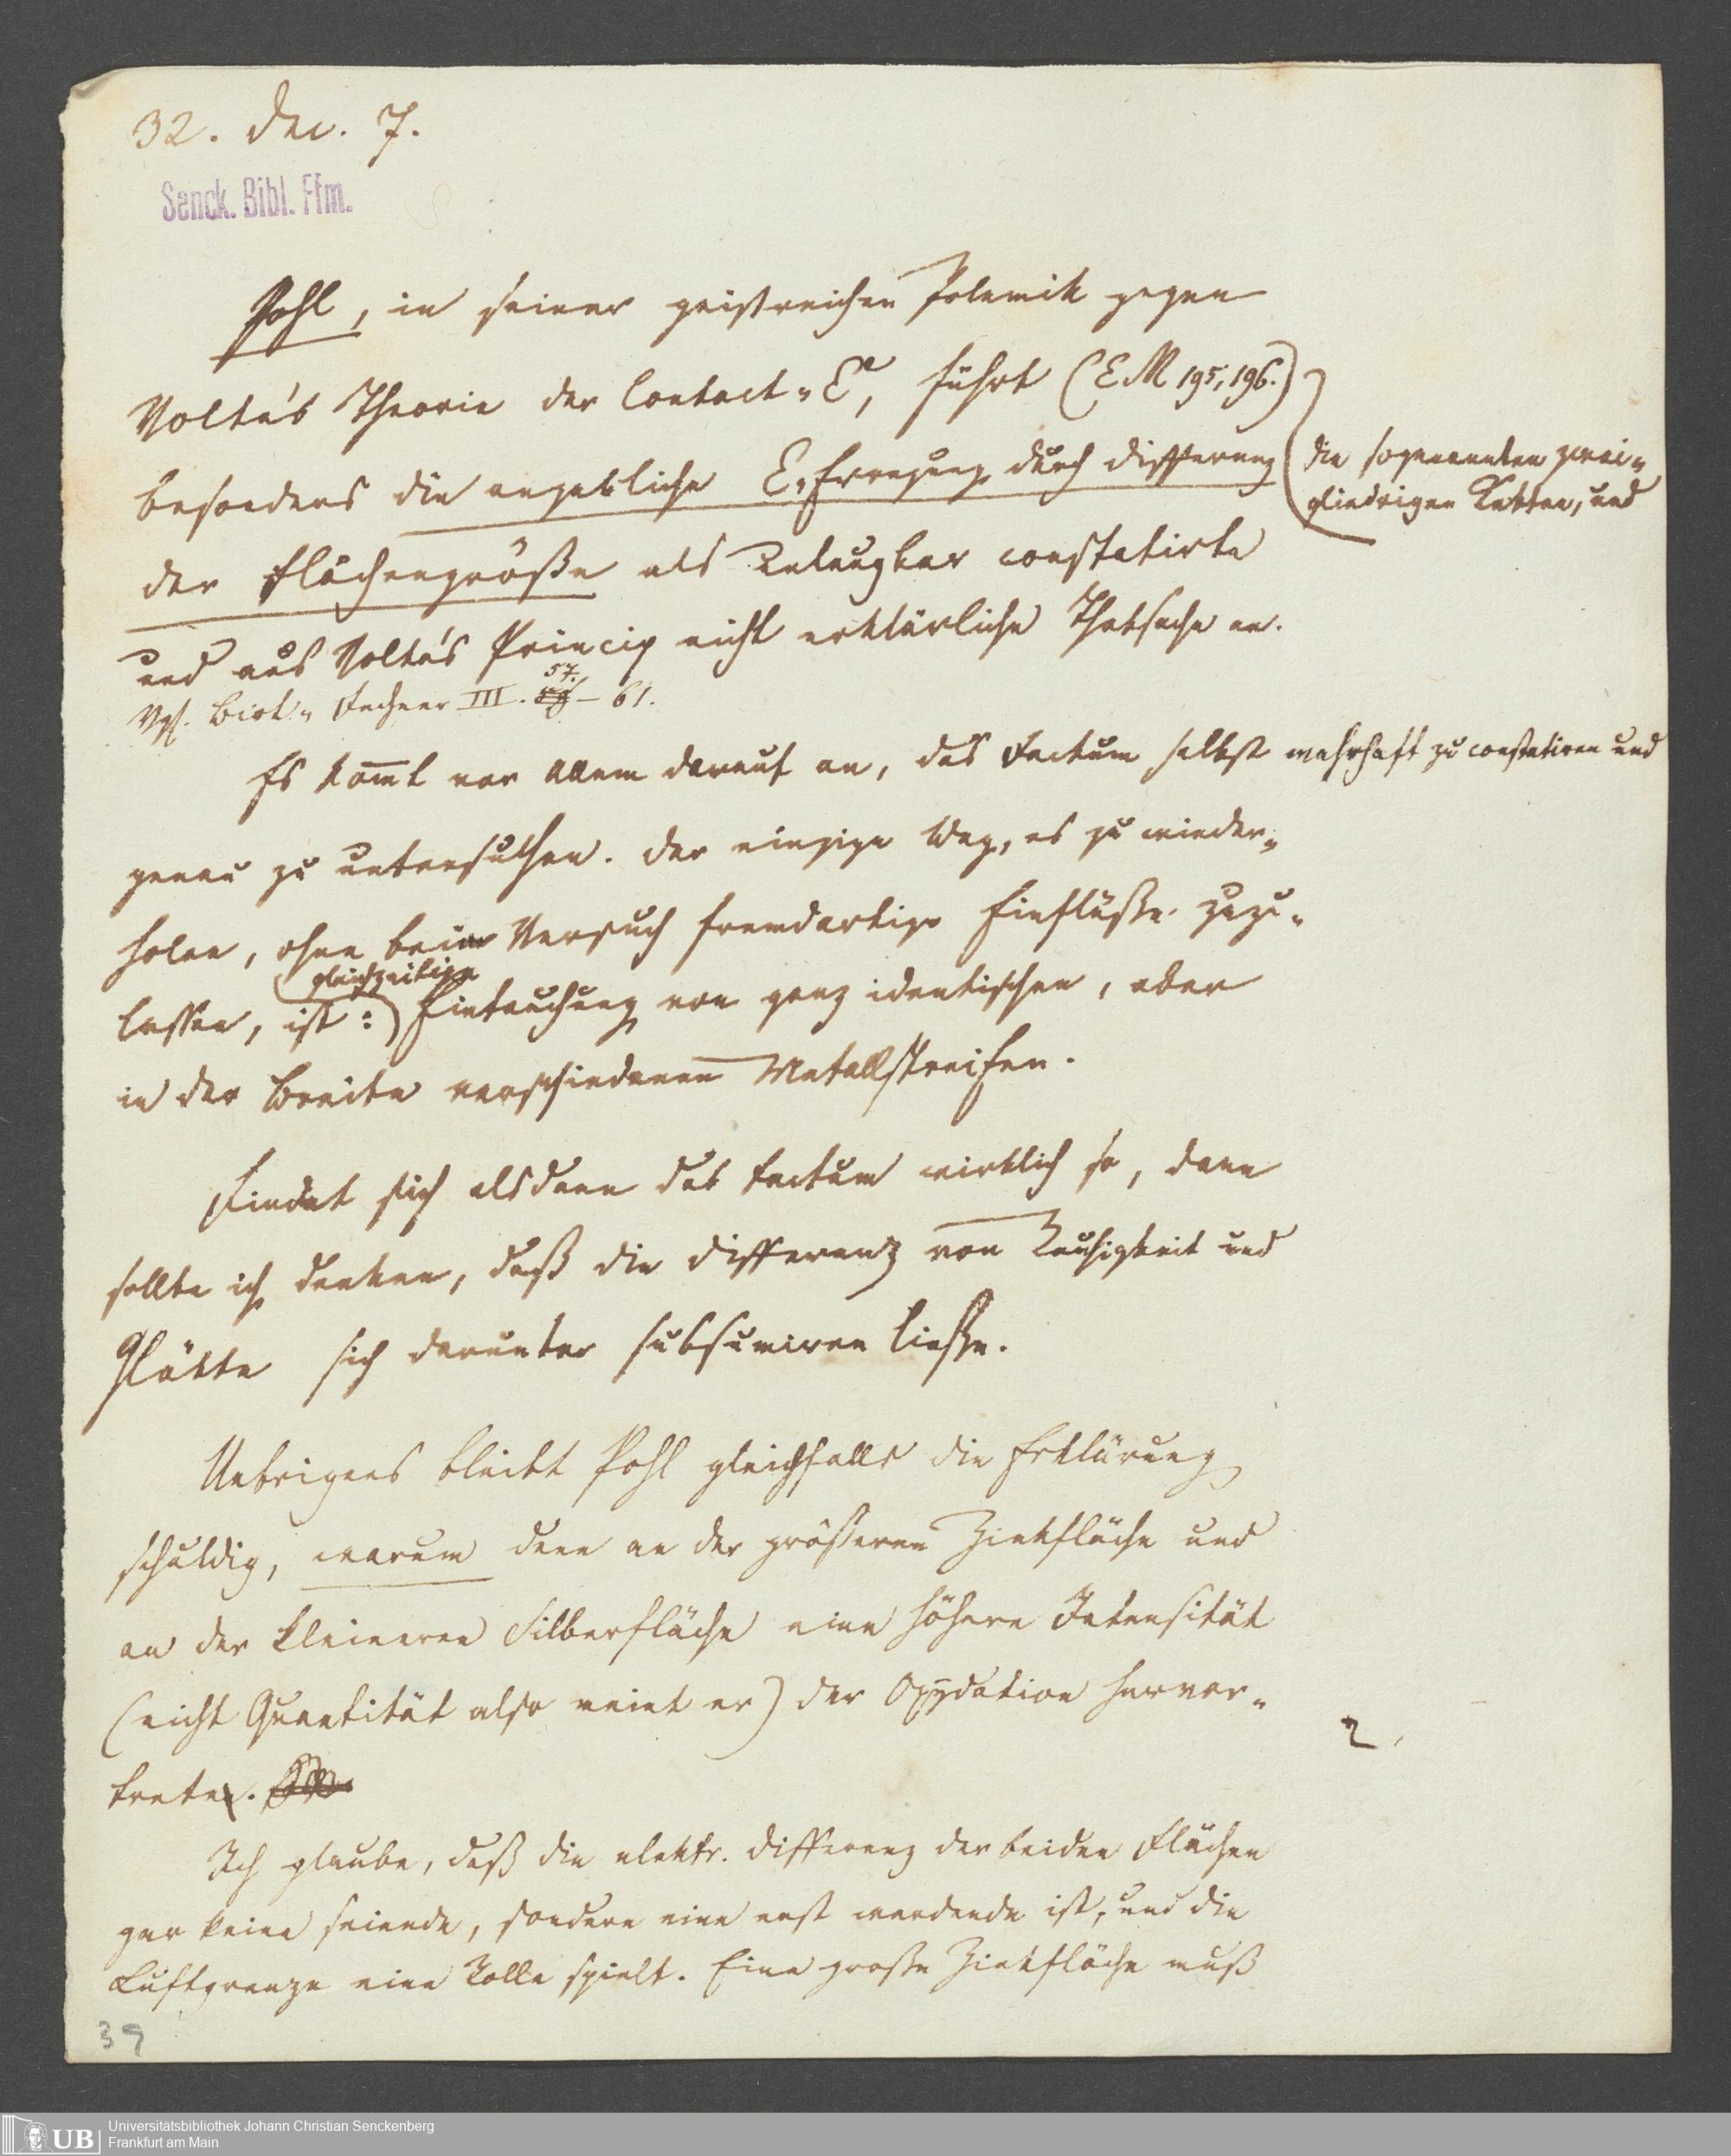 32. Dec. 7.
Senck. Bibl. Ffm.
Pohl, in seiner geistreichen Polemik gegen
Volta's Theorie der Contact-E, führt (EM 195, 196.)
besonders die angebliche E-Erregung durch Differenz
die sogenannten zwei-
gliedrigen Ketten, und
der Flächengröße als unleugbar constatirte
und aus Volta's Princip nicht erklärliche Thatsache an.
Vgl. Biot-Fechner III. 57. – 61.
Es kommt vor Allem darauf an, das Factum selbst wahrhaft zu constatiren und
genau zu untersuchen. Der einzige Weg, es zu wieder-
holen, ohne beim Versuch fremdartige Einflüße zuzu-
gleichzeitige
lassen, ist: Eintauchung von ganz identischen, aber
in der Breite verschiedenen Metallstreifen.
Findet sich alsdann das Factum wirklich so, dann
sollte ich denken, daß die Differenz von Rauhigkeit und
Glätte sich darunter subsumiren ließe.
Uebrigens bleibt Pohl gleichfalls die Erklärung
schuldig, warum denn an der größeren Zinkfläche und
an der kleineren Silberfläche eine höhere Intensität
(nicht Quantität also meint er) der Oxydation hervor-
2
trete.
Ich glaube, daß die elektr. Differenz der beiden Flächen
gar keine seiende, sondern eine erst werdende ist, und die
Luftgrenze eine Rolle spielt. Eine große Zinkfläche muß
39
UB
Universitätsbibliothek Johann Christian Senckenberg
Frankfurt am Main